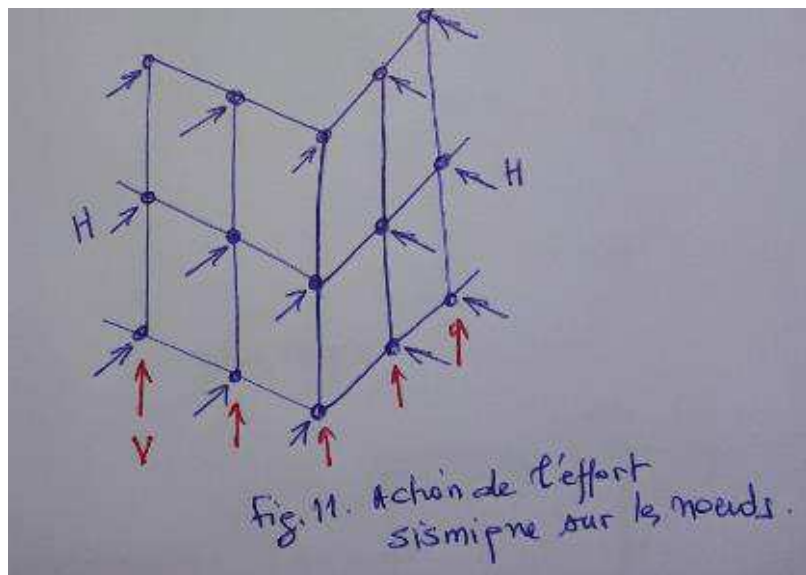 H
H
V
Fig. 11. Action de l'effort
sismique sur les noeuds.